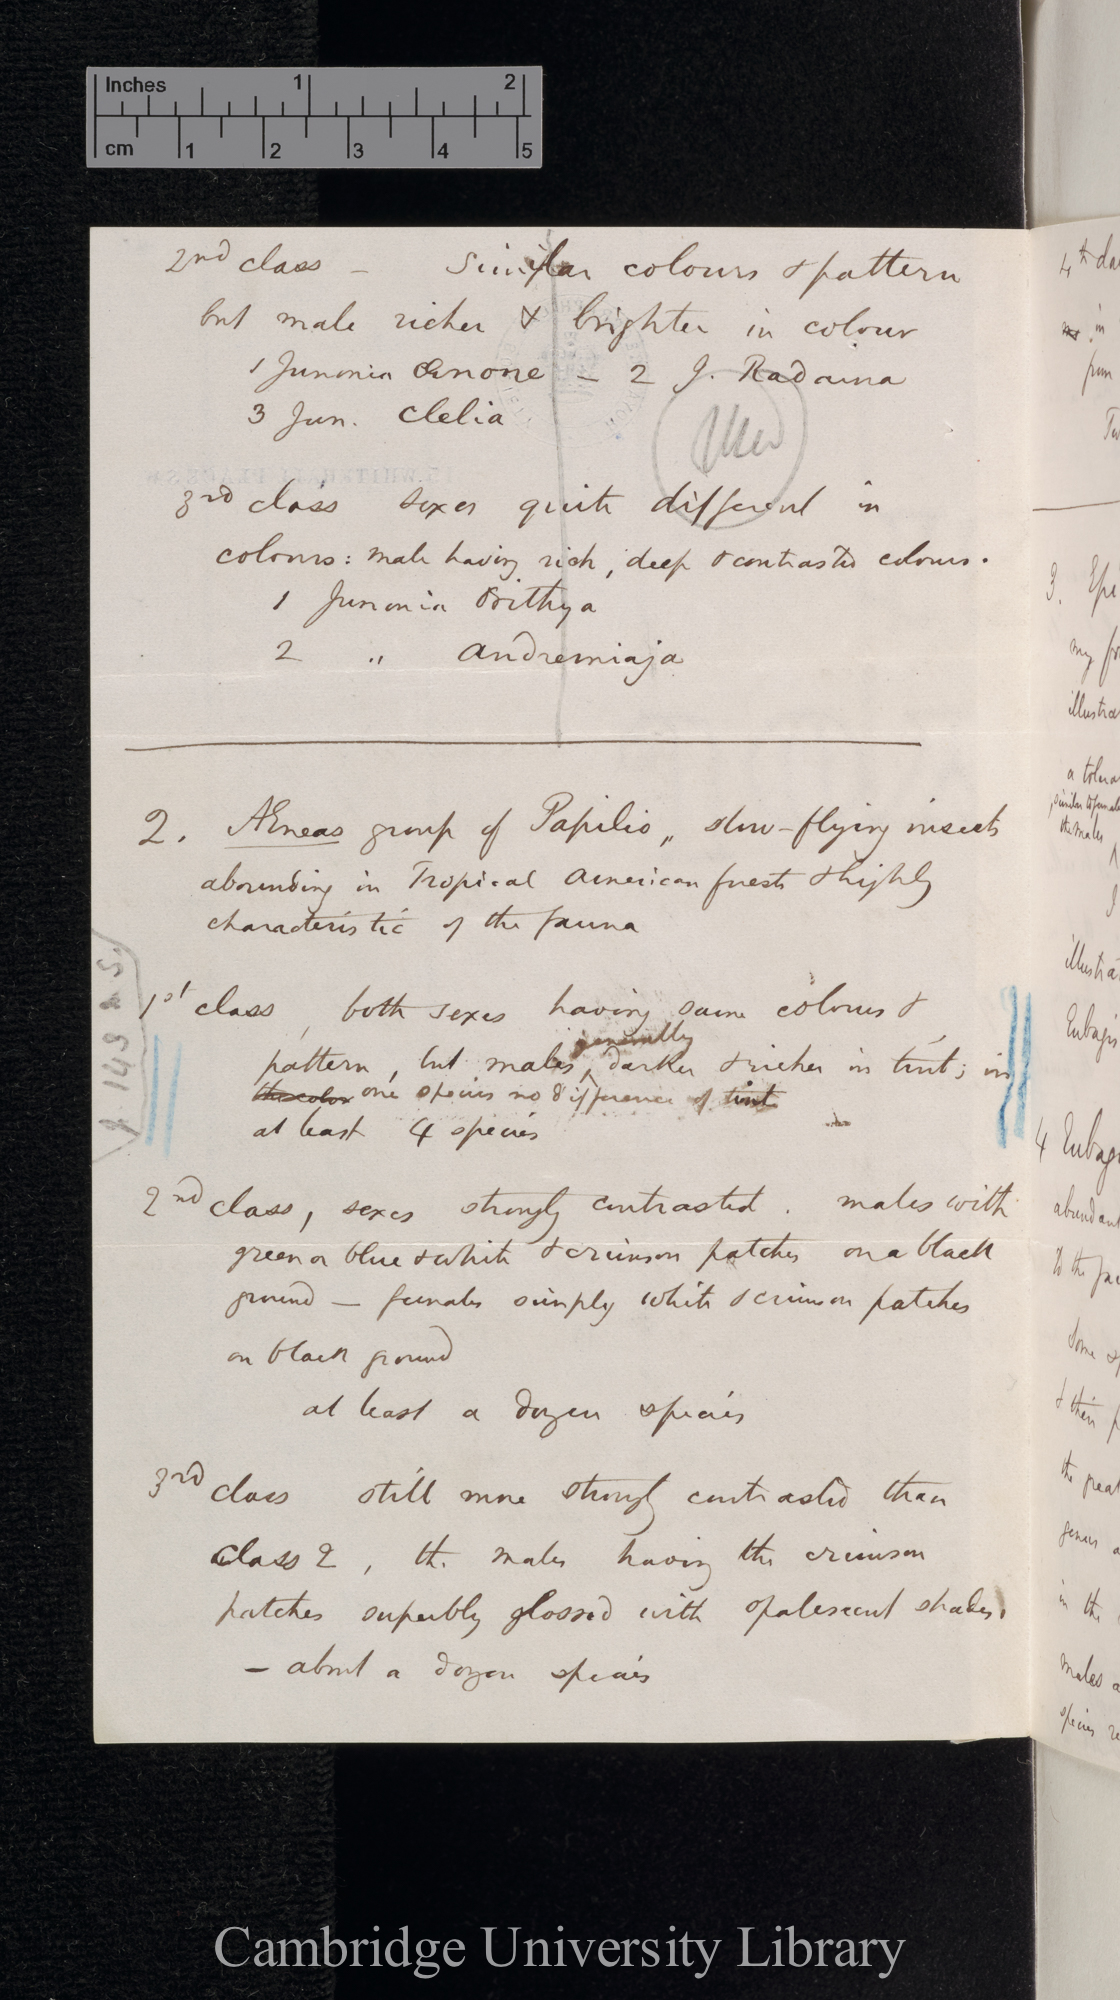 Inches 1 2
cm 1 2 3 4 5
2nd class – Similar colours & pattern
but male richer & brighter in colour
1 Junonia Œnone – 2 J. Radama
3 Jun. Clelia
3rd class sexes quite different in
colours: male having rich, deep & contrasted colours.
1 Junonia Orithya
2 " Andremiaja
2. Æneas group of Papilio,, slow-flying insects
abounding in Tropical American forests & highly
characteristic of the fauna
1st class, both sexes having same colours &
generally
pattern, but males, darker & richer in tint; in
one species no difference of tint
at least 4 species
2nd class, sexes strongly contrasted. males with
green or blue & white & crimson patches on a black
ground – females simply white & crimson patches
on black ground
at least a dozen species
3rd class still more strongly contrasted than
class 2, the males having the crimson
patches superbly glossed with opalescent shades.
– about a dozen species
4th
in
3.
my
4
some
the
in the
males
species
Cambridge University Library